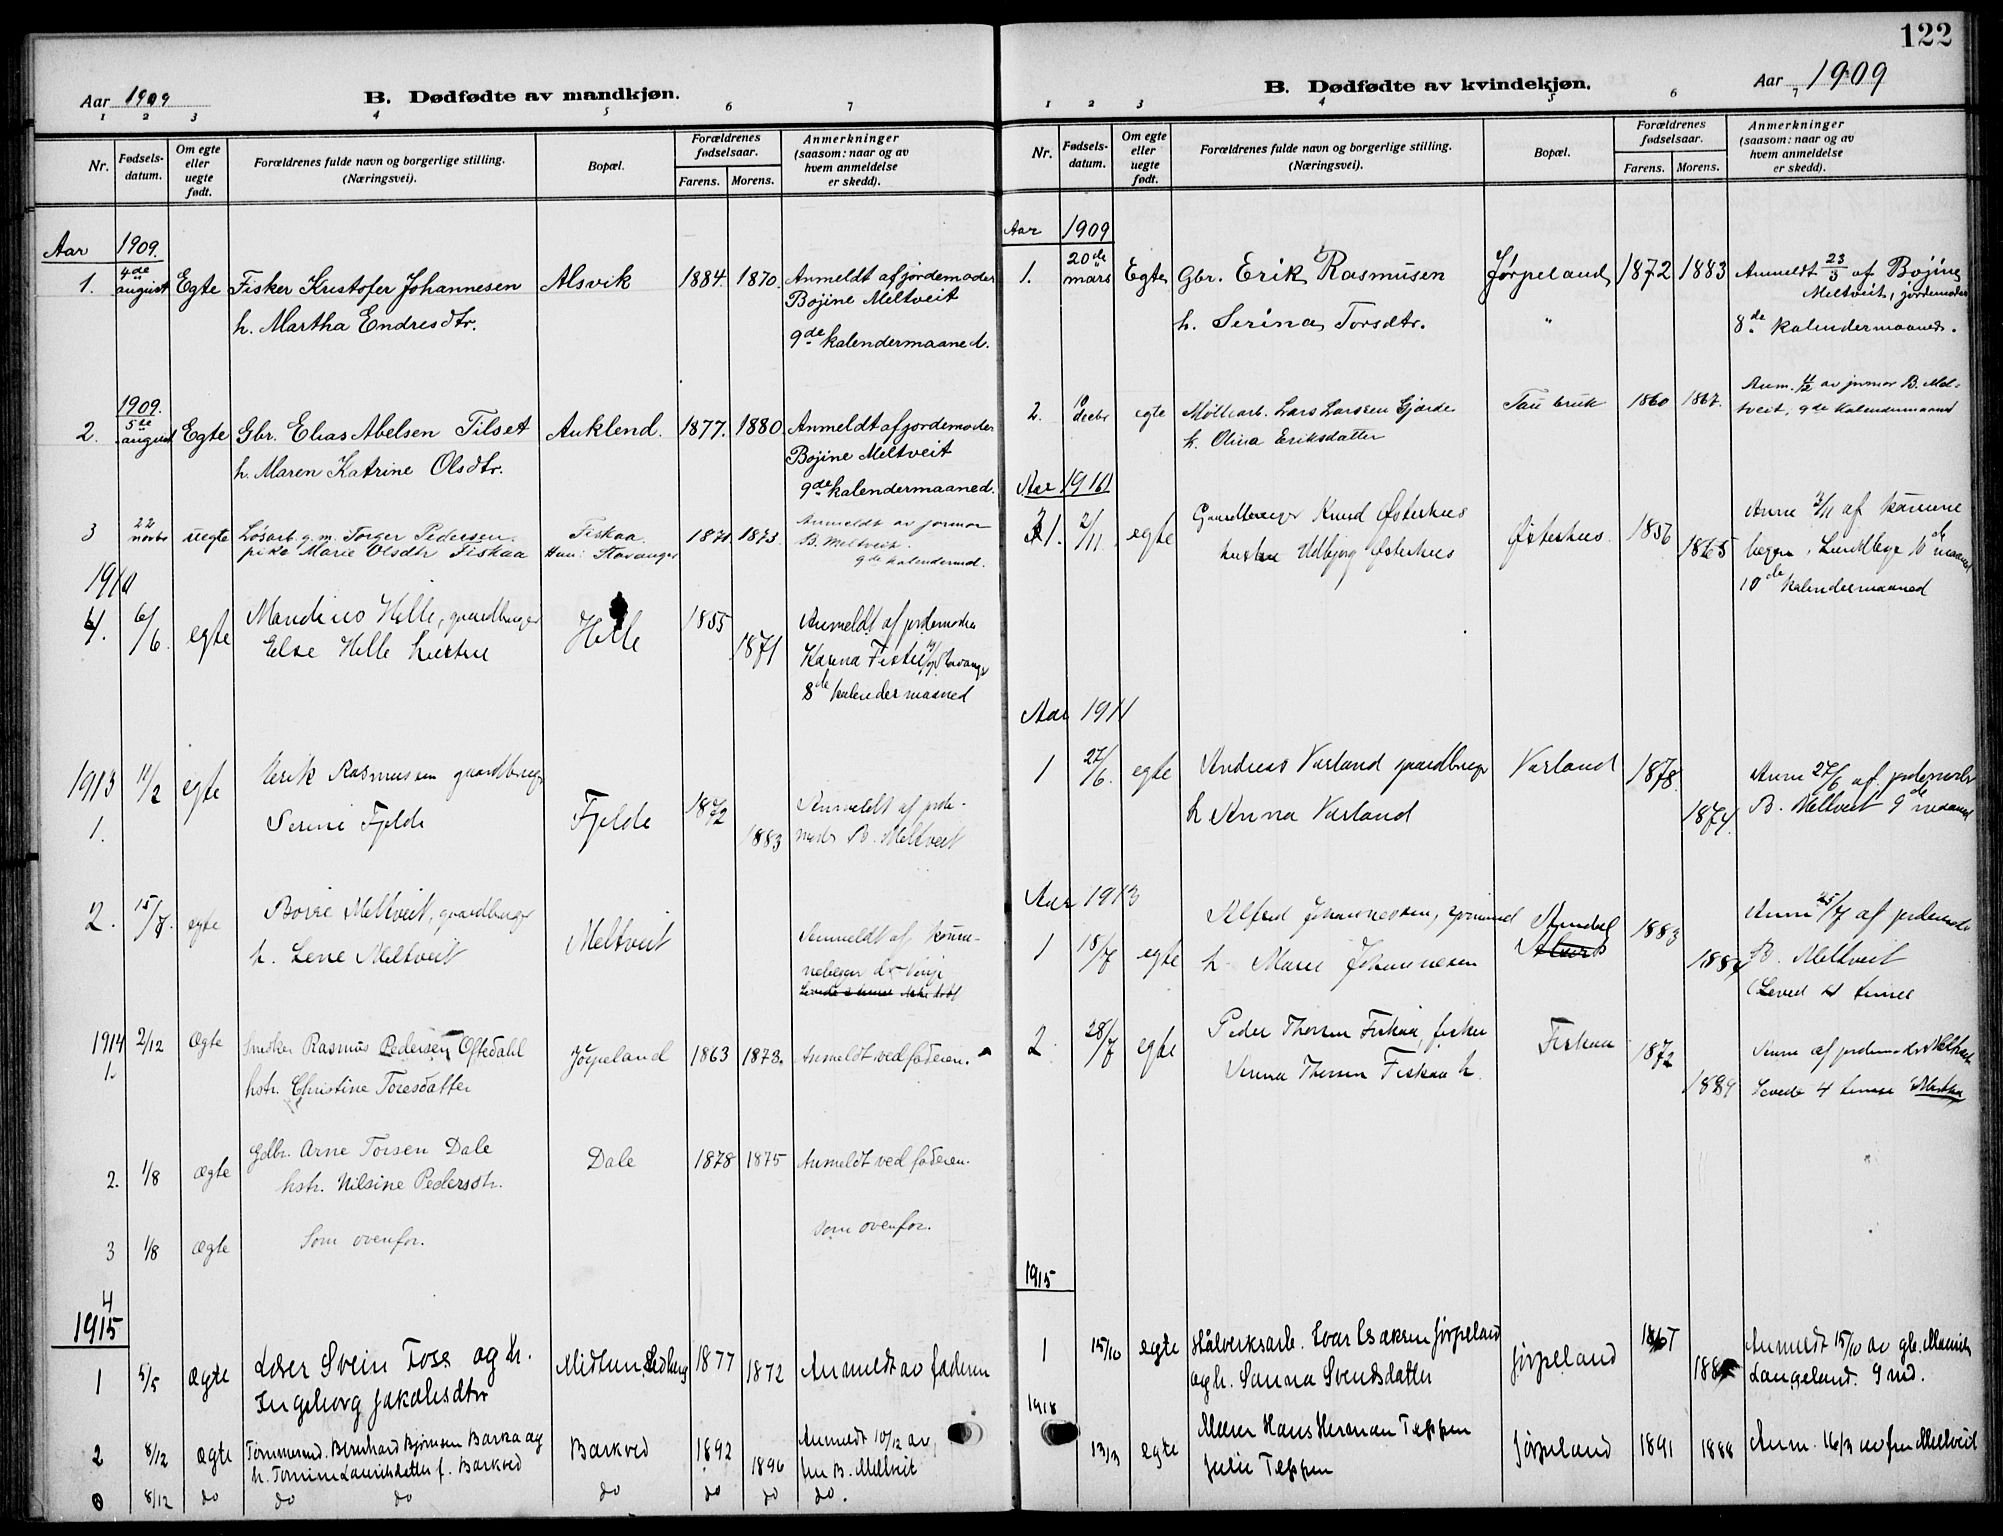 Aar 1909
B. Dødfødte av mandkjøn.
1 2 3 4 5 6 7
Nr.
Fødsels-
datum.
Om egte
eller
uegte
født.
Forældrenes fulde navn og borgerlige stilling.
(Næringsvei).
Bopæl.
Forældrenes
fødselsaar.
Farens. Morens.
Anmerkninger
(saasom: naar og av
hvem anmeldelse
er skedd).
Aar 1909.
1. 4de august Egte Fisker Kristofer Johannesen Alsvik 1884. 1870. Anmeldt af jordemoder
h. Martha Endresdtr. Bojine Meltveit
9de kalendermaaned.
1909.
2. 5te august Egte Gbr. Elias Abelsen Tilset Auklend. 1877. 1880 Anmeldt af jordemoder
h. Maren Katrine Olsdtr. Bojine Meltveit
9de kalendermaaned.
3 22 novbr uegte Løsarb. g. m. Torger Pedersen. Fiskaa. 1871 1873. Anmeldt av jormor
pike Marie Olsdtr Fiskaa Hun: Stavanger B. Meltveit.
9de kalendermd.
1910
4. 6/6. egte Mandius Helle, gaardbruger Helle 1855 Anmeldt af jordemoder
Else Helle hustru 1871 Karina Fister
8de kalendermaaned
1913 11/2 egte Erik Rasmussen gaardbruger Fjelde 1872 Anmeldt af jorde-
1. Serine Fjelde 1883 moder B. Meltveit
2. 15/8. egte Børge Meltveit, gaardbruger Meltveit Anmeldt af komu-
h. Lene Meltveit nelegen
1914 2/12 Ægte Snedker Rasmus Pedersen Oftedahl Jørpeland 1863 1873. Anmeldt ved faderen.
1. hstr. Christine Toresdatter
2. 1/8 Ægte Gdbr. Arne Torsen Dale Dale 1878 1875 Anmeldt ved faderen.
hstr. Nilsine Pedersdtr.
3 1/8 Ægte Som ovenfor. Som ovenfor.
4
1915
1 5/5 Ægte Lærer Svein Foss og h. Midtun, 1877 1872 Anmeldt av faderen
Ingeborg Jakobsdtr
2 8/12 Ægte Tømmermd. Bernhard Bjørnsen Barka og Barkved 1892 1896 Anmeldt 10/12 av
h. Tomine Lauritsdatter f. Barkved fru B. Meltveit
8/12 do do do do do do do.
122
B. Dødfødte av kvindekjøn.
Aar 1909
1 2 3 4 5 6 7
Nr.
Fødsels-
datum.
Om egte
eller
uegte
født.
Forældrenes fulde navn og borgerlige stilling.
(Næringsvei).
Bopæl.
Forældrenes
fødselsaar.
Farens. Morens.
Anmerkninger
(saasom: naar og av
hvem anmeldelse
er skedd).
Aar 1909
1. 20de mars Egte Gbr. Erik Rasmusen Jørpeland 1872 1883 Anmeldt 23/3 af Bojine
Meltveit, jordemoder
h. Serina Torsdtr. " 8de kalendermaaned.
2. 10 decbr egte Møllearb. Lars Larssen Gjerde Tau bruk 1860 1867. Anm. 11/2 av jormor B. Mel-
h. Olina Eriksdatter tveit, 9de kalendermaaned
Aar 1910
1. 2/11 egte Gaardbruger Knud Østerhus Østerhus. 1856 Anm 7/11 af komune
hustru Østerhus 1865 legen
10de kalendermaaned
Aar 1911
1 27/6. egte Andreas Varland gaardbruger Varland 1878. Anm 27/6 af jordemoder
h Anna Varland 1874. B. Meltveit 9de maaned
Aar 1913
1 18/7 egte Alfred Johannessen, 1883 Anm 25/7 af jordemoder
h. Marie Johannesen 1884 B. Meltveit
(Leved 4 timer
2 28/7 egte Peder Thorsen Fiskaa, fisker Fiskaa 1872 Anm af jordemoder Meltveit
Anna Thorsen Fiskaa h. 1884 Levede 4 timer
1915
1 15/10 egte Hålverksarb. Ivar Isaksen Jørpeland Jørpeland 1867 Anmeldt 15/10 av gb.
og h. Sanna Svendsdatter Langeland. 9 md.
1918
13/3 egte Møller Hans Herman Teppen Jørpeland 1891 1888 Anm. 16/3 av fru Meltveit
Julie Teppen